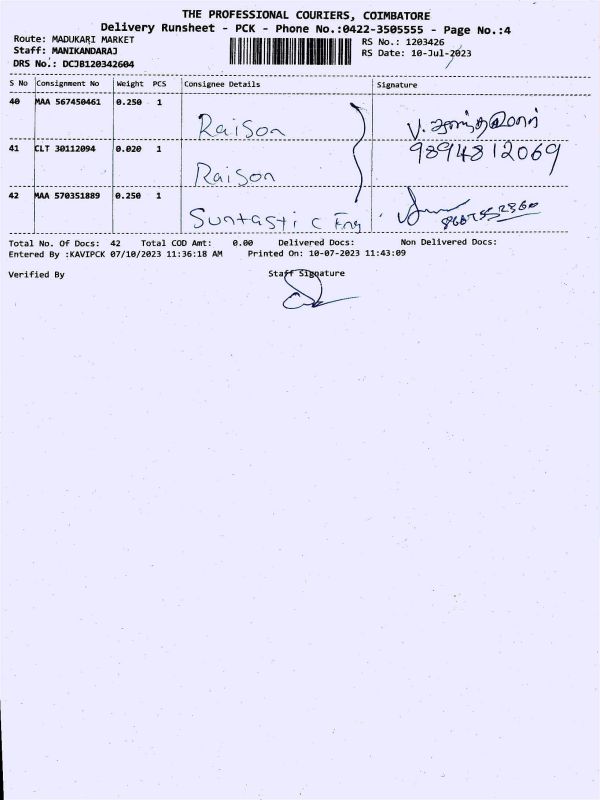 THE PROFESSIONAL COURIERS, COIMBATORE
Delivery Runsheet - PCK - Phone No.:0422-3505555 - Page No.:4
Route: MADUKARI MARKET
RS No.: 1203426
Staff: MANIKANDARAJ
RS Date: 10-Jul-2023
DRS No.: DCJB120342604
S No Consignment No Weight PCS Consignee Details Signature
40 MAA 567450461 0.250 1
Raison
41 CLT 30112094 0.020 1
9894812069
Raison
42 MAA 570351889 0.250 1
Suntastic Eng
Total No. Of Docs: 42 Total COD Amt: 0.00 Delivered Docs: Non Delivered Docs:
Entered By :KAVIPCK 07/10/2023 11:36:18 AM Printed On: 10-07-2023 11:43:09
Verified By Staff Signature